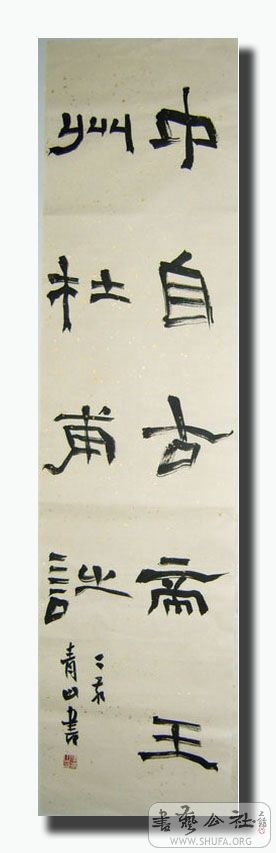 中自古帝王
州杜甫詩
青山書
書藝公社
WWW.SHUFA.ORG